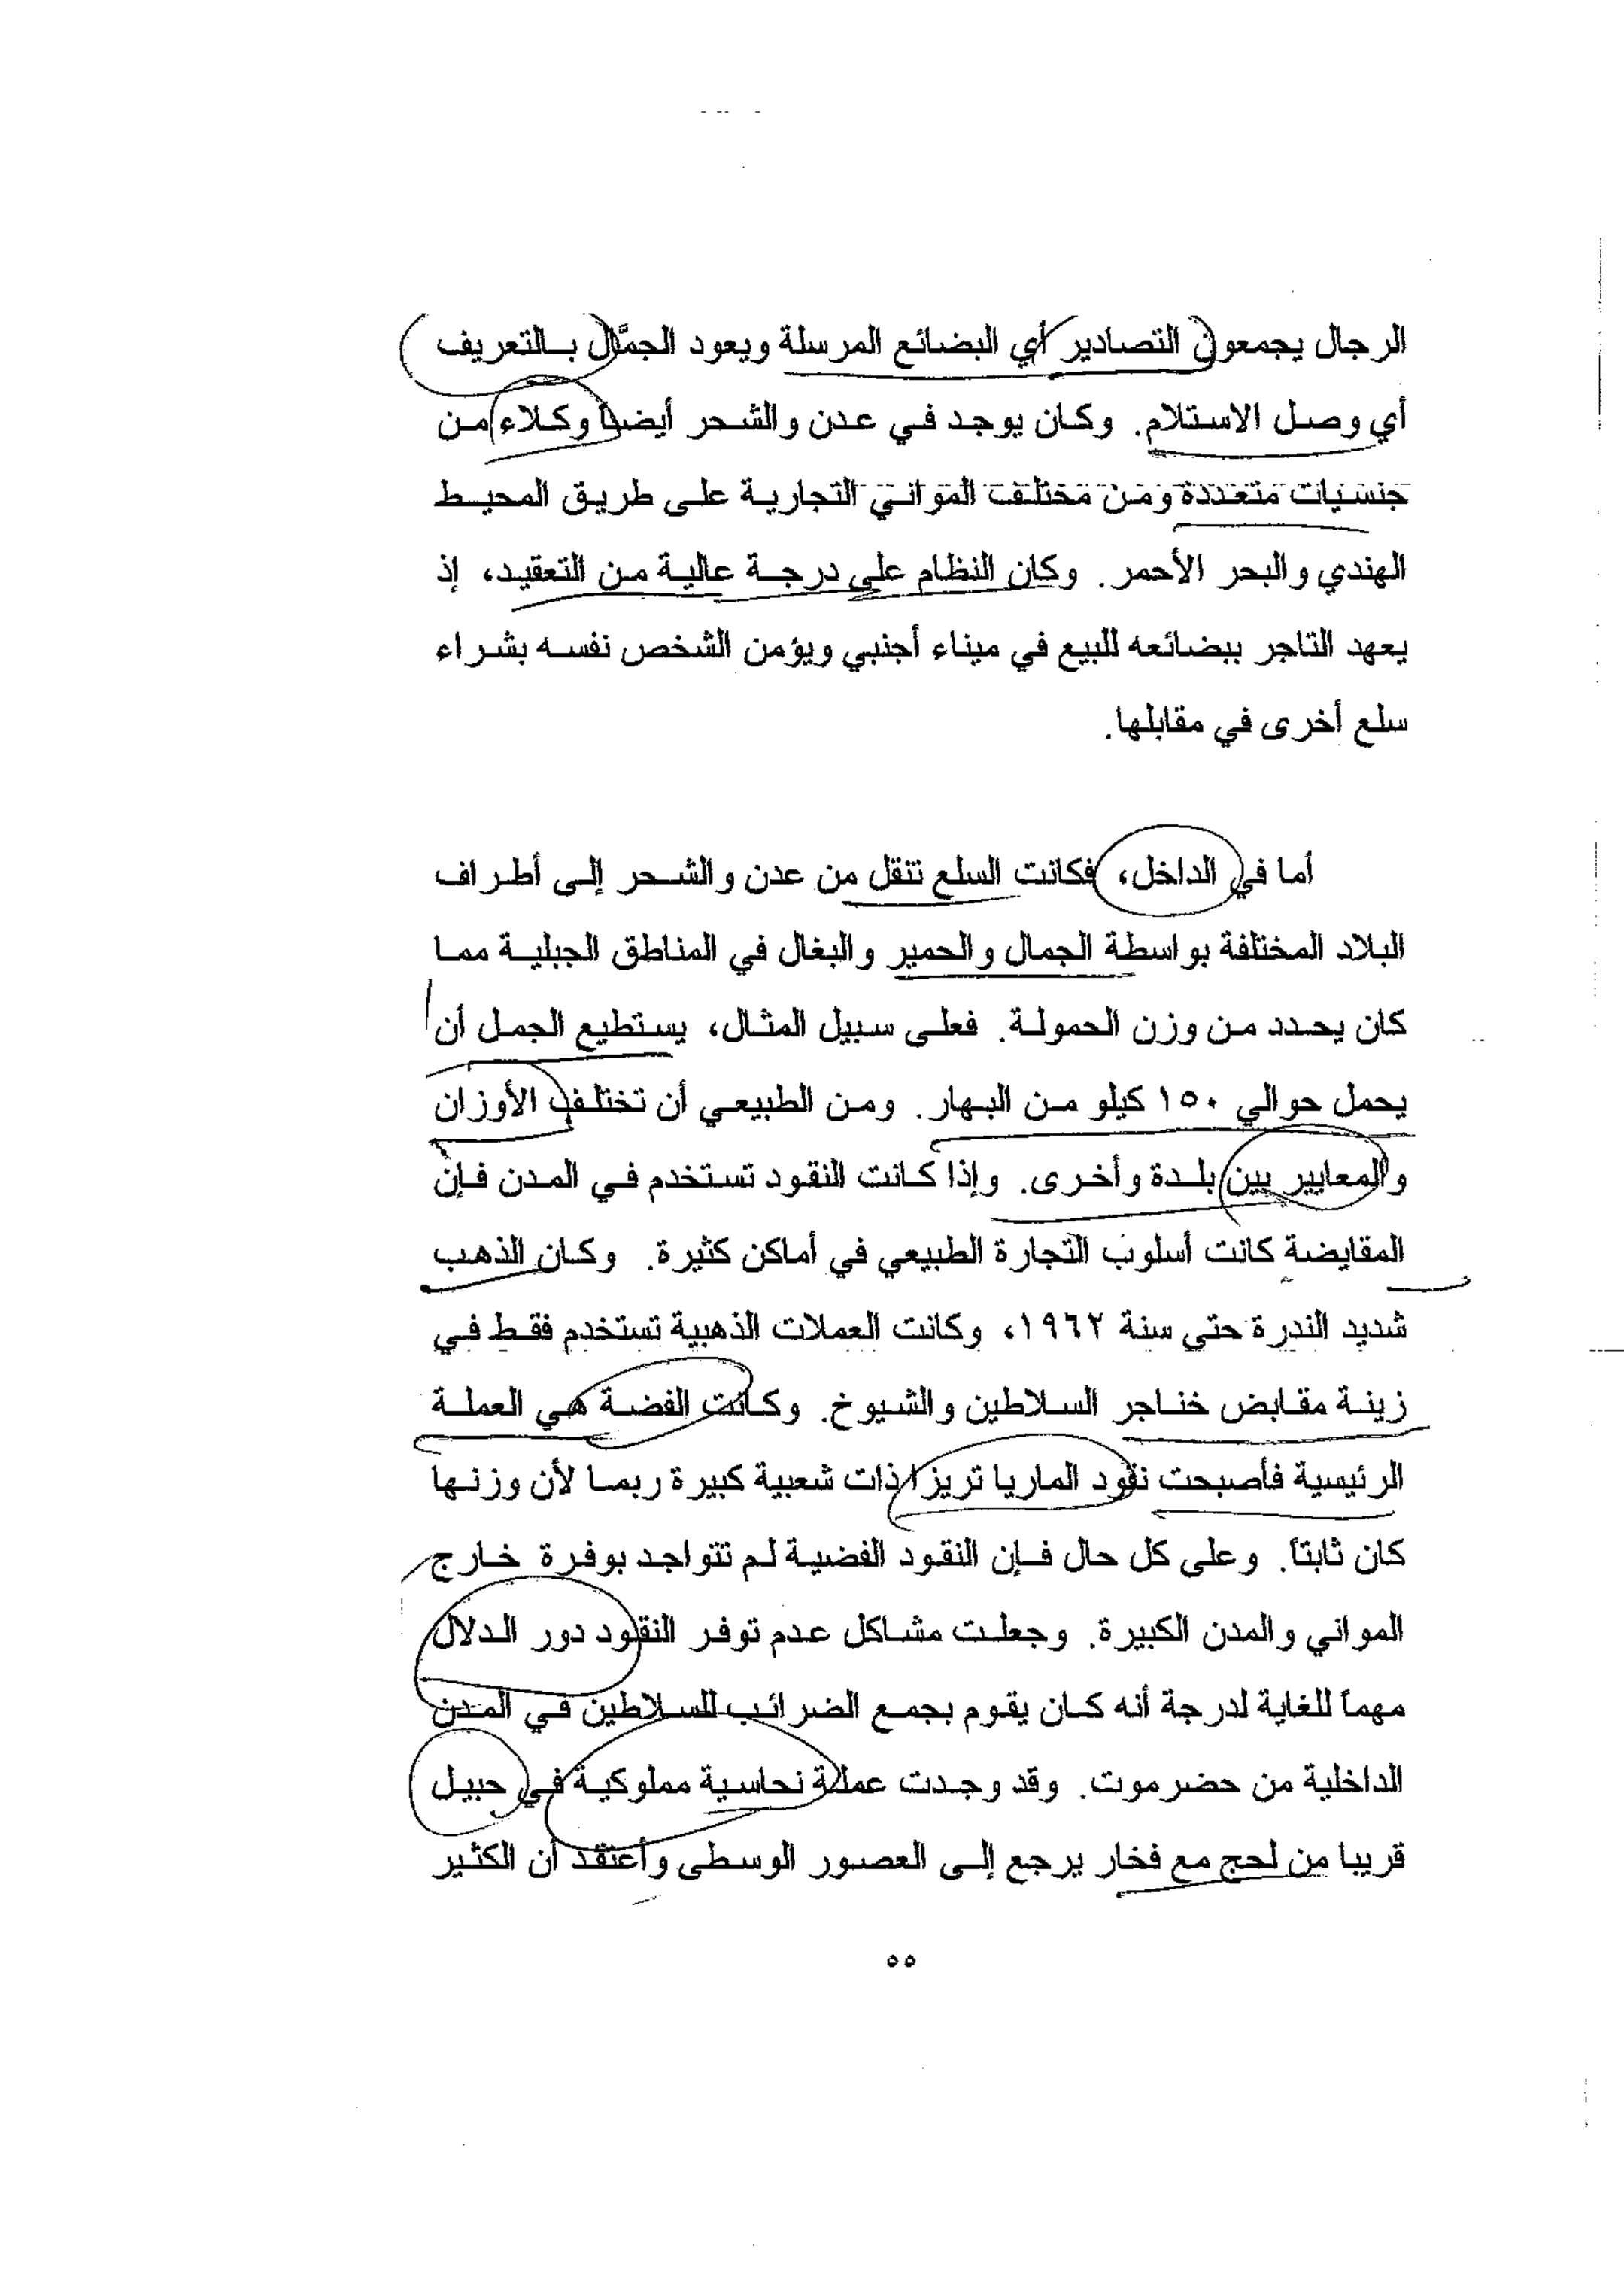 الرجال يجمعون التصادير أي البضائع المرسلة ويعود الجمَّال بالتعريف
أي وصل الاستلام. وكان يوجد في عدن والشحر أيضا وكلاء من
جنسيات متعددة ومن مختلف المواني التجارية على طريق المحيط
الهندي والبحر الأحمر. وكان النظام على درجة عالية من التعقيد، إذ
يعهد التاجر ببضائعه للبيع في ميناء أجنبي ويؤمن الشخص نفسه بشراء
سلع أخرى في مقابلها.
أما في الداخل، فكانت السلع تنقل من عدن والشحر إلى أطراف
البلاد المختلفة بواسطة الجمال والحمير والبغال في المناطق الجبلية مما
كان يحدد من وزن الحمولة. فعلى سبيل المثال، يستطيع الجمل أن
يحمل حوالي ١٥٠ كيلو من البهار. ومن الطبيعي أن تختلف الأوزان
والمعايير بين بلدة وأخرى. وإذا كانت النقود تستخدم في المدن فإن
المقايضة كانت أسلوب التجارة الطبيعي في أماكن كثيرة. وكان الذهب
شديد الندرة حتى سنة ١٩٦٢، وكانت العملات الذهبية تستخدم فقط في
زينة مقابض خناجر السلاطين والشيوخ. وكانت الفضة هي العملة
الرئيسية فأصبحت نقود الماريا تريزا ذات شعبية كبيرة ربما لأن وزنها
كان ثابتاً. وعلى كل حال فإن النقود الفضية لم تتواجد بوفرة خارج
المواني والمدن الكبيرة. وجعلت مشاكل عدم توفر النقود دور الدلال
مهماً للغاية لدرجة أنه كان يقوم بجمع الضرائب للسلاطين في المدن
الداخلية من حضرموت. وقد وجدت عملة نحاسية مملوكية في حبيل
قريبا من لحج مع فخار يرجع إلى العصور الوسطى وأعتقد أن الكثير
٥٥